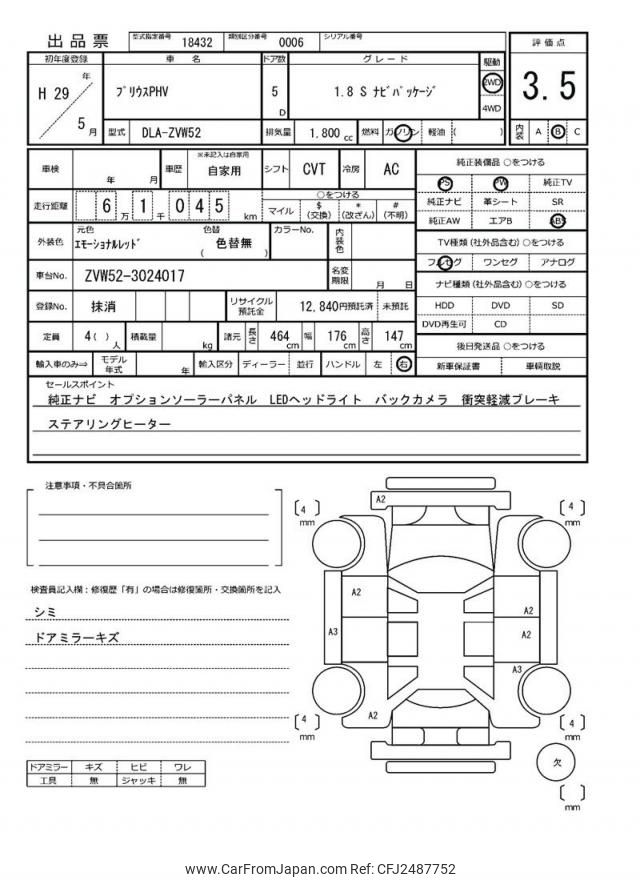 出品票 型式指定番号 18432 類別区分番号 0006 シリアル番号
初年度登録 車 名 ドア数 グレード 駆動 評価点
H 29 年 5 月 プリウスPHV 5 D 1.8 S ナビパッケージ 2WD 4WD 3.5
型式 DLA-ZVW52 排気量 1,800 cc 燃料 ガソリン 軽油 ( ) 内装 A B C
車検 年 月 車歴 ※未記入は自家用 自家用 シフト CVT 冷房 AC 純正装備品 ○をつける
PS PW 純正TV
走行距離 6 万 1 千 0 4 5 km ○をつける
マイル $ (交換) * (改ざん) # (不明)
純正ナビ 革シート SR
純正AW エアB ABS
外装色 元色 エモーショナルレッド 色替 ( 色替無 ) カラーNo. 内装色
TV種類 (社外品含む) ○をつける
フルセグ ワンセグ アナログ
車台No. ZVW52-3024017 名変期限 月 日
ナビ種類 (社外品含む) ○をつける
登録No. 抹消 リサイクル預託金 12,840円預託済 未預託
HDD DVD SD
DVD再生可 CD
定員 4 ( ) 人 積載量 kg 諸元 長さ 464 cm 幅 176 cm 高さ 147 cm
後日発送品 ○をつける
輸入車のみ⇒ モデル年式 年 輸入区分 ディーラー 並行 ハンドル 左 右
新車保証書 車輌取説
セールスポイント
純正ナビ オプションソーラーパネル LEDヘッドライト バックカメラ 衝突軽減ブレーキ
ステアリングヒーター
注意事項・不具合箇所
検査員記入欄：修復歴「有」の場合は修復箇所・交換箇所を記入
シミ
ドアミラーキズ
ドアミラー キズ ヒビ ワレ
工具 無 ジャッキ 無
A2
[ 4 ] mm
[ 4 ] mm
A2
A2
A3
A2
A3
A2
[ 4 ] mm
[ 4 ] mm
欠
[ ] mm
www.CarFromJapan.com Ref: CFJ2487752